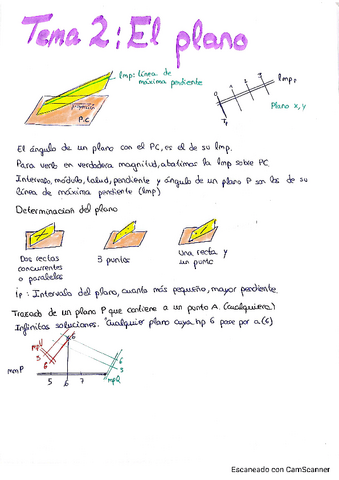 Tema 2: El plano
lmp: línea de
máxima pendiente
proyección
P.C
lmp
Plano x, y
El ángulo de un plano con el PC, es el de su lmp.
Para verlo en verdadera magnitud, abatimos la lmp sobre PC
Intervalo, módulo, talud, pendiente y ángulo de un plano P son los de su
línea de máxima pendiente (lmp)
Determinacion del plano
Dos rectas
concurrentes
o paralelas
3 puntos
Una recta y
un punto
ip: Intervalo del plano, cuanto más pequeño, mayor pendiente.
Trazado de un plano P que contiene a un punto A. (cualquiera)
Infinitas soluciones. Cualquier plano cuya hp 6 pase por a(6)
mpU
5
6
6
6
5
mmP
5 6 7
mpQ
Escaneado con CamScanner